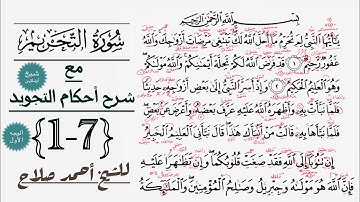 سورة التحريم
مع
شرح أحكام التجويد
{7-1}
للشيخ أحمد صلاح
الوجه الأول
بسم الله الرحمن الرحيم
يَا أَيُّهَا النَّبِيُّ لِمَ تُحَرِّمُ مَا أَحَلَّ اللَّهُ لَكَ تَبْتَغِي مَرْضَاتَ أَزْوَاجِكَ وَاللَّهُ
غَفُورٌ رَحِيمٌ ١ قَدْ فَرَضَ اللَّهُ لَكُمْ تَحِلَّةَ أَيْمَانِكُمْ وَاللَّهُ مَوْلَاكُمْ
وَهُوَ الْعَلِيمُ الْحَكِيمُ ٢ وَإِذْ أَسَرَّ النَّبِيُّ إِلَى بَعْضِ أَزْوَاجِهِ حَدِيثًا
فَلَمَّا نَبَّأَتْ بِهِ وَأَظْهَرَهُ اللَّهُ عَلَيْهِ عَرَّفَ بَعْضَهُ وَأَعْرَضَ عَنْ بَعْضٍ
فَلَمَّا نَبَّأَهَا بِهِ قَالَتْ مَنْ أَنْبَأَكَ هَذَا قَالَ نَبَّأَنِيَ الْعَلِيمُ الْخَبِيرُ
إِنْ تَتُوبَا إِلَى اللَّهِ فَقَدْ صَغَتْ قُلُوبُكُمَا وَإِنْ تَظَاهَرَا عَلَيْهِ
فَإِنَّ اللَّهَ هُوَ مَوْلَاهُ وَجِبْرِيلُ وَصَالِحُ الْمُؤْمِنِينَ وَالْمَلَائِكَةُ